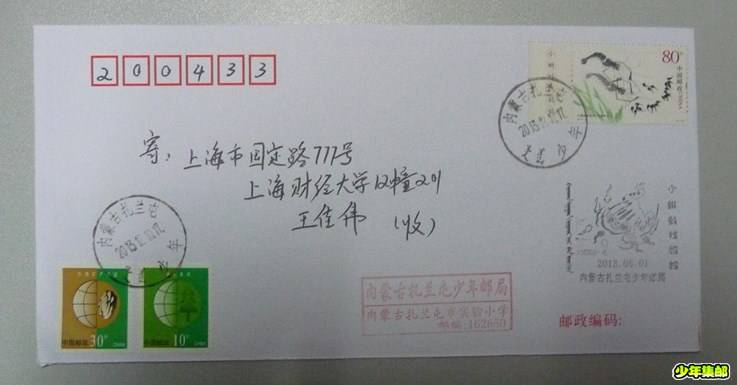 200433
80分
中国邮政
寄: 上海市国定路777号
上海财经大学12幢201
王佳伟 (收)
内蒙古扎兰屯
少年
内蒙古扎兰屯
少年
2013.06.01
内蒙古扎兰屯少年邮局
内蒙古扎兰屯少年邮局
内蒙古扎兰屯市实验小学
邮编:162650
中国邮政
30分
中国邮政
10分
邮政编码:
少年集邮